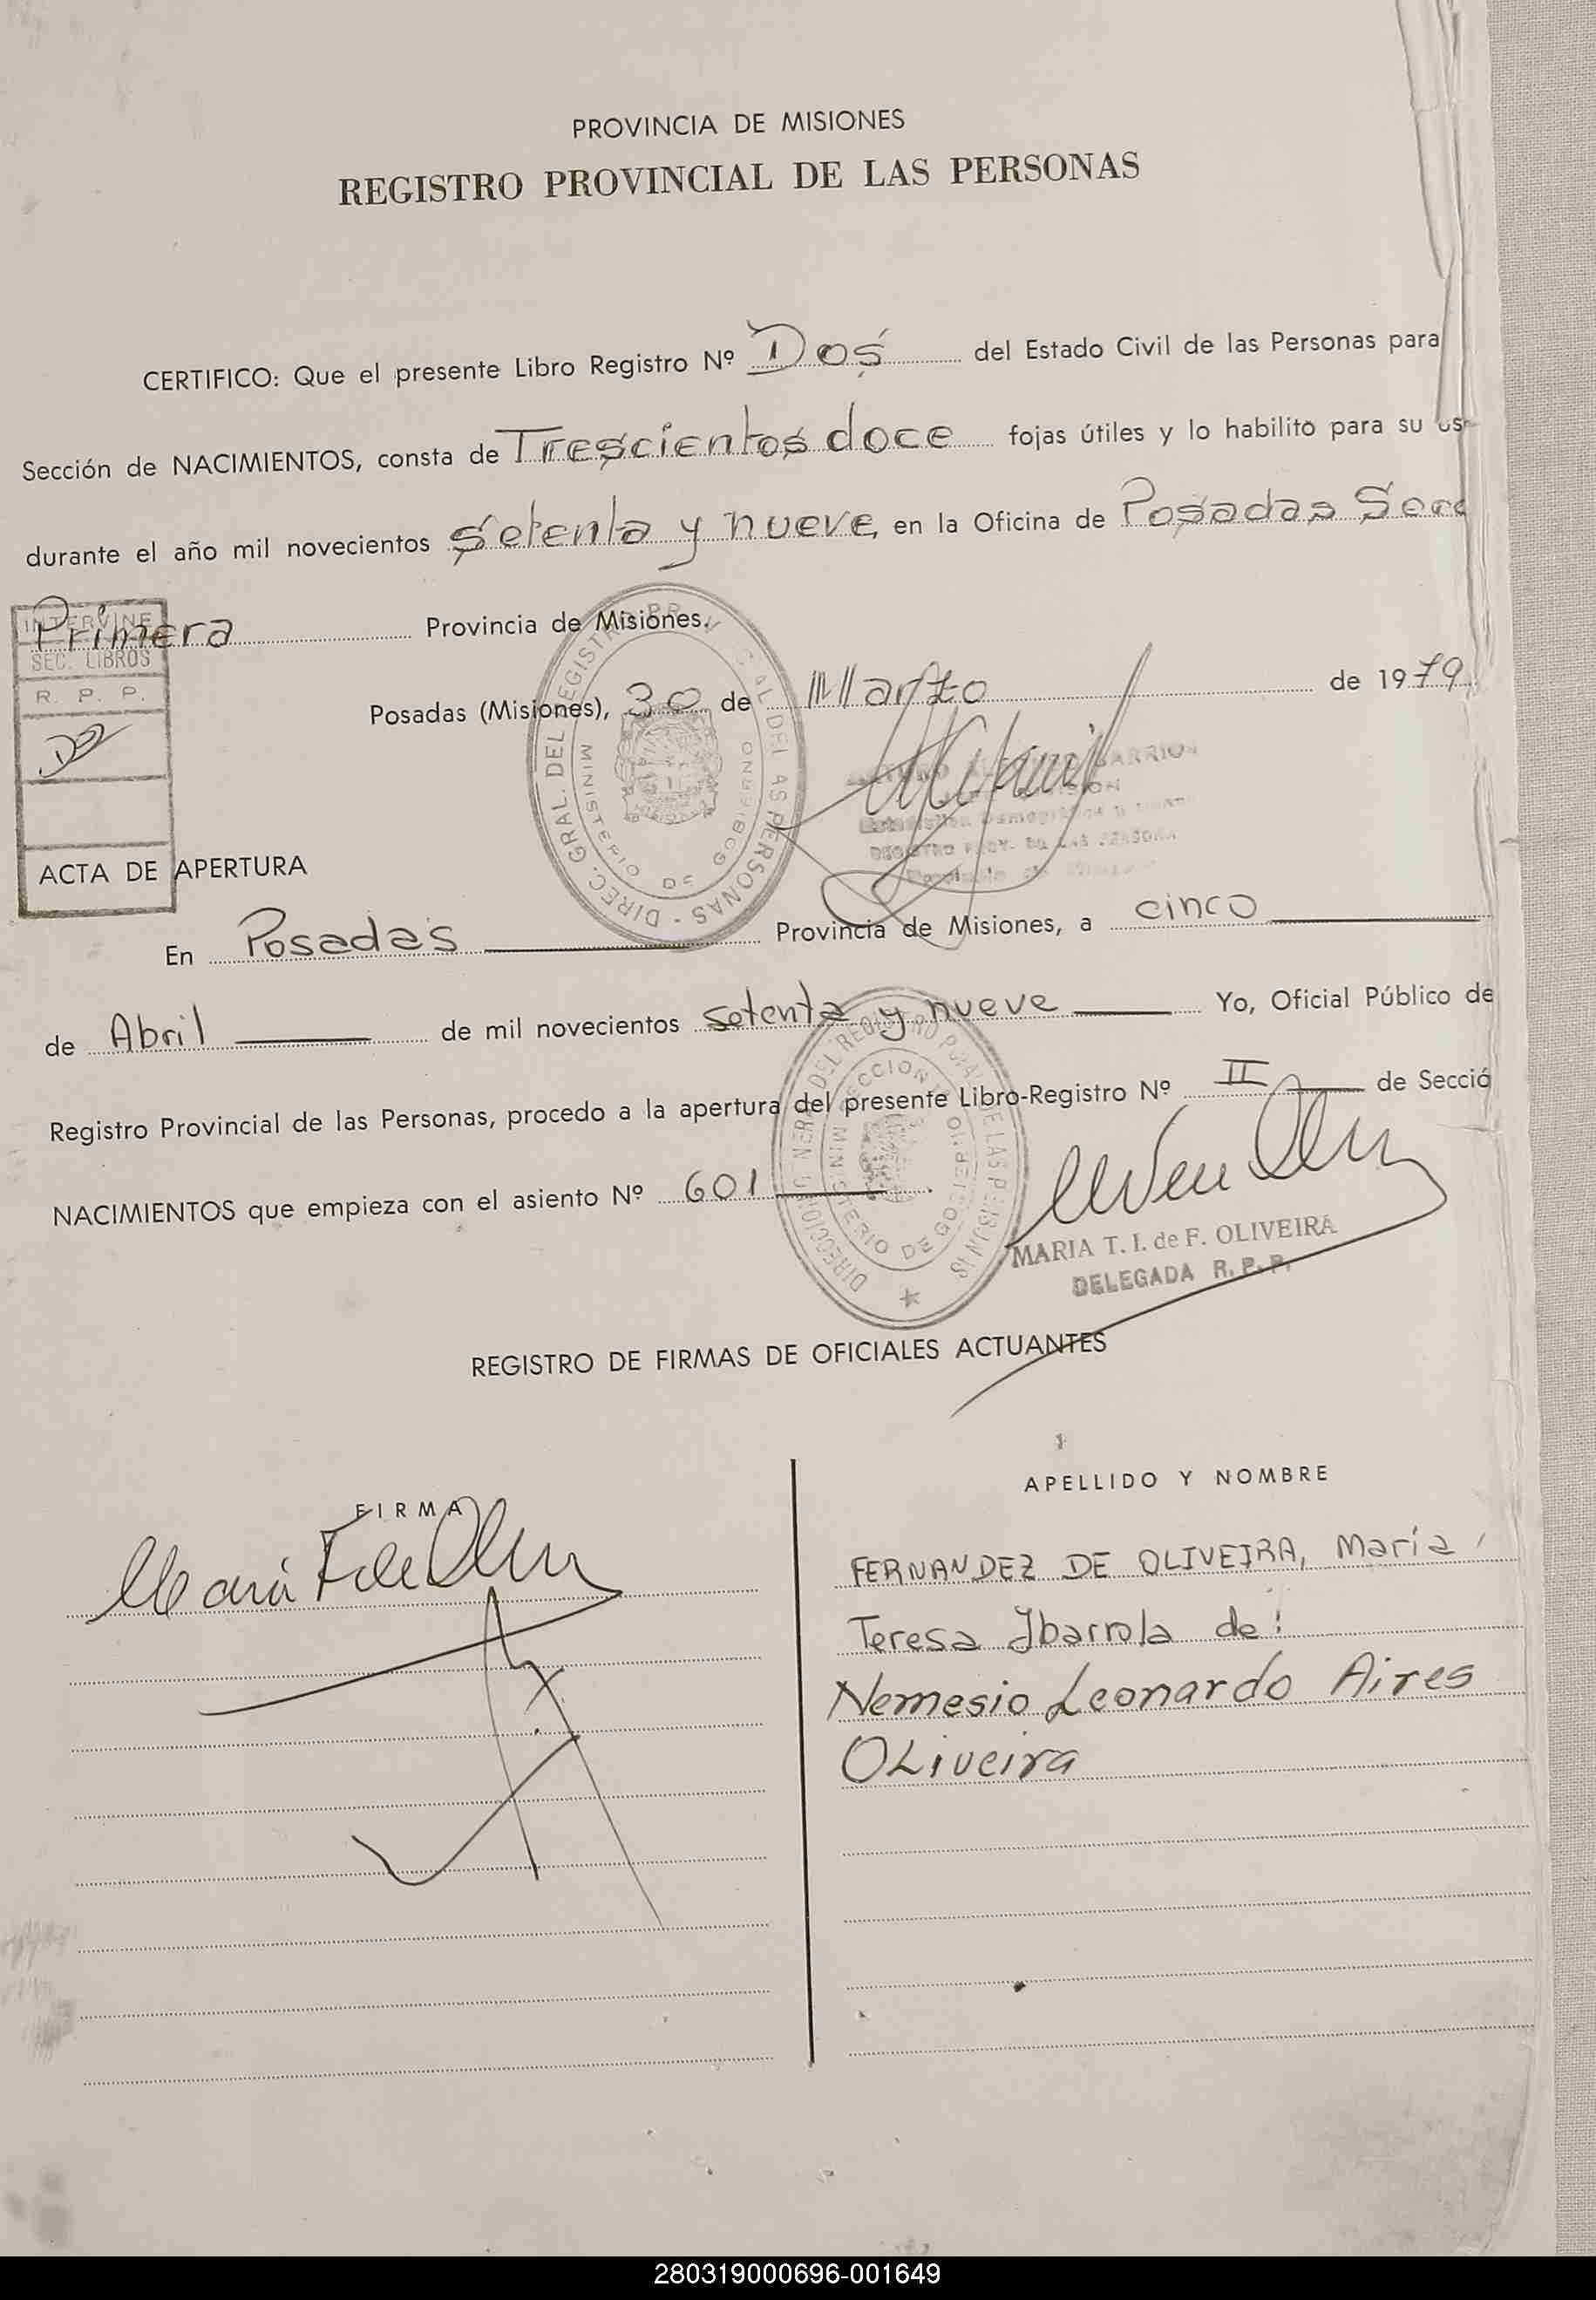 PROVINCIA DE MISIONES
REGISTRO PROVINCIAL DE LAS PERSONAS
CERTIFICO: Que el presente Libro Registro Nº Dos del Estado Civil de las Personas para
Sección de NACIMIENTOS, consta de Trescientos doce fojas útiles y lo habilito para su us
durante el año mil novecientos setenta y nueve, en la Oficina de Posadas Secc
Primera Provincia de Misiones.
INTERVINE
SEC. LIBROS
R. P. P.
Posadas (Misiones), 30 de Marzo de 1979
DIREC. GRAL. DEL REGISTRO PROVINCIAL DE LAS PERSONAS
MINISTERIO DE GOBIERNO
ACTA DE APERTURA
En Posadas Provincia de Misiones, a cinco
de Abril de mil novecientos setenta y nueve Yo, Oficial Público de
Registro Provincial de las Personas, procedo a la apertura del presente Libro-Registro Nº II de Secció
NACIMIENTOS que empieza con el asiento Nº 601
MINISTERIO DE GOBIERNO
MARIA T. I. de F. OLIVEIRA
DELEGADA R. P. P.
REGISTRO DE FIRMAS DE OFICIALES ACTUANTES
FIRMA
APELLIDO Y NOMBRE
FERNANDEZ DE OLIVEIRA, María
Teresa Ibarrola de:
Nemesio Leonardo Aires
OLiveira
280319000696-001649